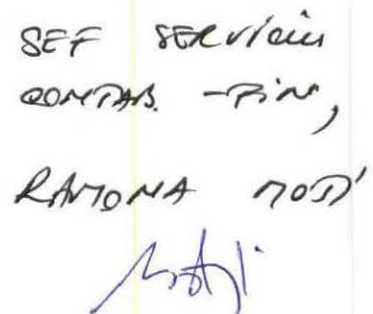 SEF SERVICIU
CONTAB. -FIN,
RAMONA MOȚI